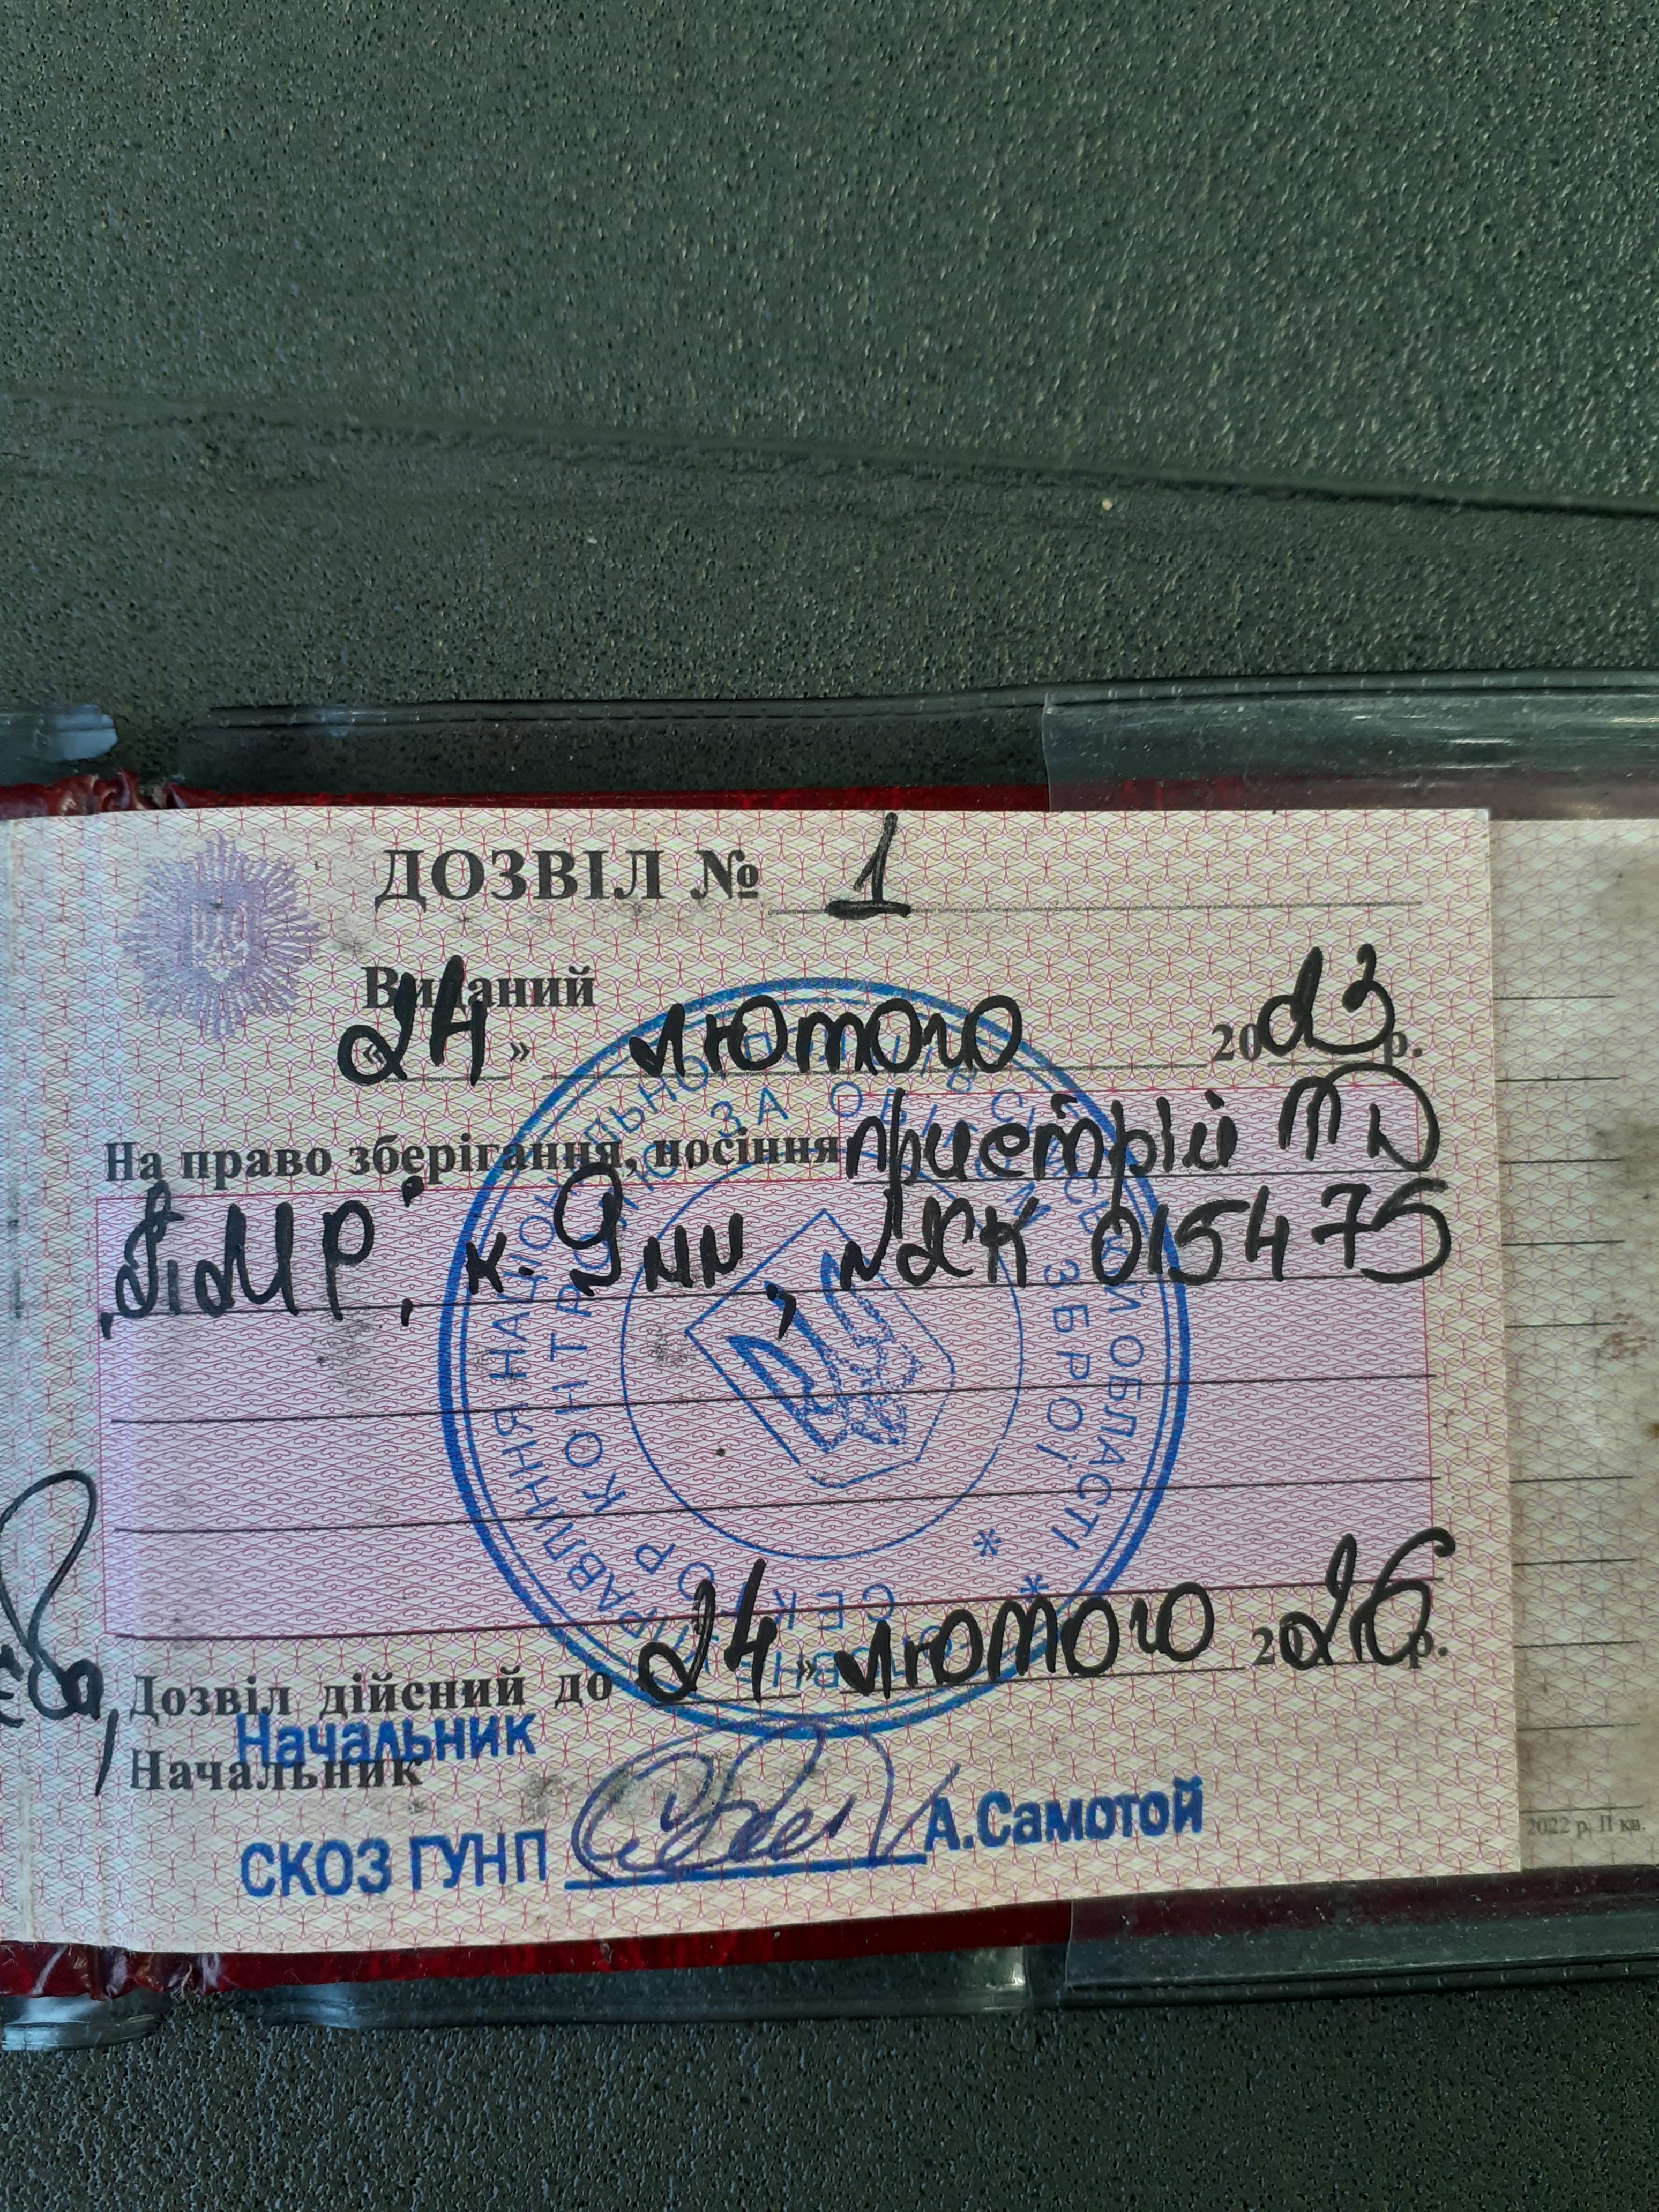 ДОЗВІЛ № 1
Виданий
«24» лютого 2023 р.
На право зберігання, носіння пристрій ТД
к. 9 мм, № 015475
Дозвіл дійсний до 24 » лютого 2026 р.
Начальник
Начальник
СКОЗ ГУНП А.Самотой
УПРАВЛІННЯ НАЦІОНАЛЬНОЇ ОБЛАСТІ
СЕКТОР КОНТРОЛЮ ЗА ОБІГОМ ЗБРОЇ
2022 р. II кв.